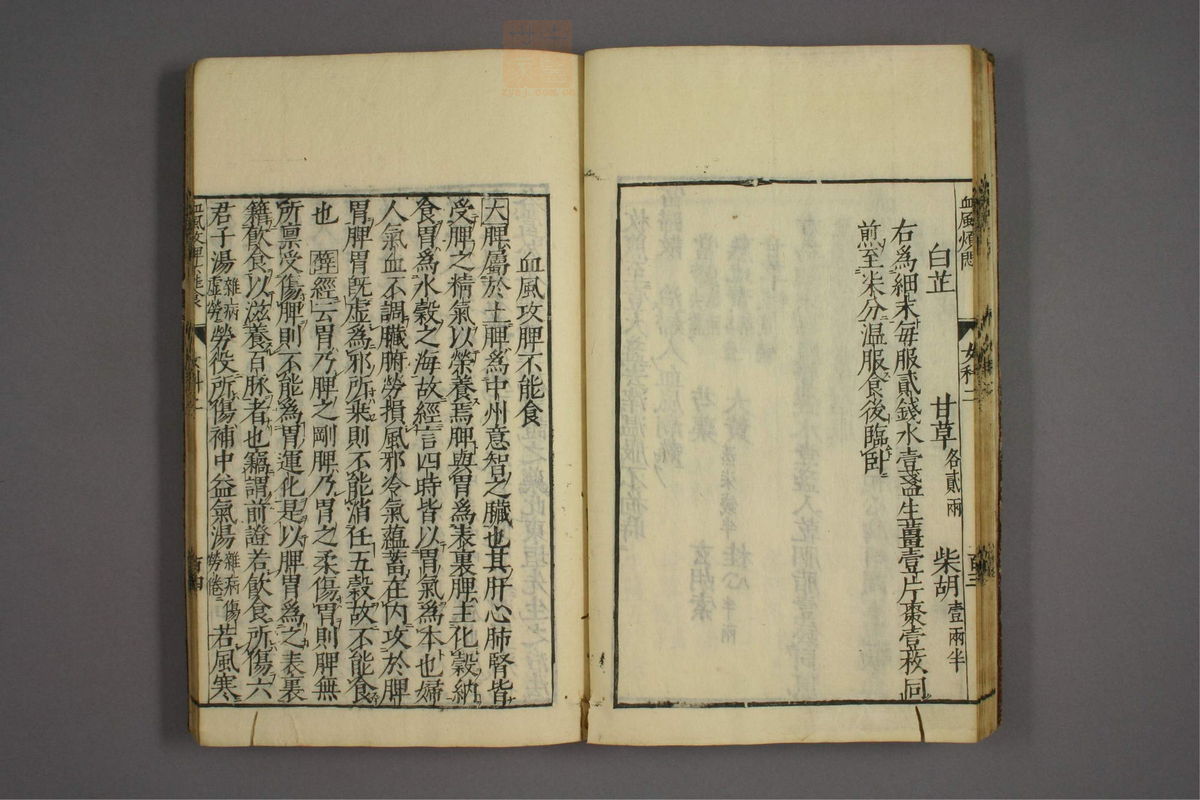 血風煩悶
女科二
百三
白芷
甘草各貳兩
柴胡壹兩半
右爲細末每服貳錢水壹盞生薑壹片棗壹枚同
煎至柒分溫服食後臨臥
血風攻脾不能食
大脾屬於土脾爲中州意智之臟也其肝心肺腎皆
受脾之精氣以榮養焉脾與胃爲表裏脾主化穀納
食胃爲水穀之海故經言四時皆以胃氣爲本也婦
人氣血不調臟腑勞損風邪冷氣蘊蓄在內攻於脾
胃脾胃既虛爲邪所乘則不能消任五穀故不能食
也 薛經云胃乃脾之剛脾乃胃之柔傷胃則脾無
所禀受傷脾則不能爲胃運化是以脾胃爲之表裏
籍飲食以滋養百脉者也竊謂前證若飲食所傷六
君子湯雜病虛勞勞役所傷補中益氣湯雜病傷勞倦若風寒
血風攻脾不能食
女科二
百四